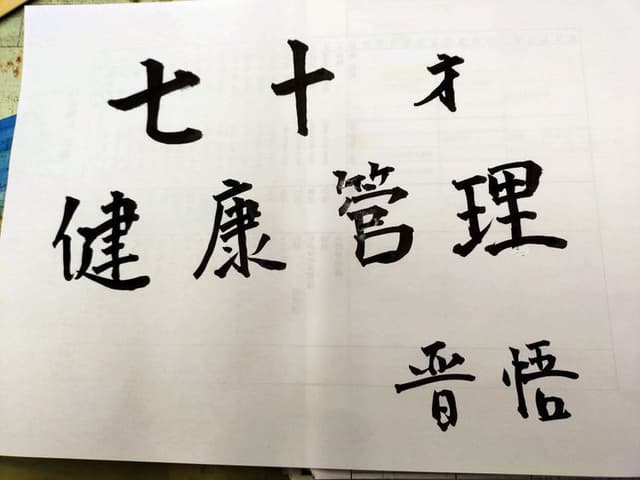 七十才
健康管理
晋悟